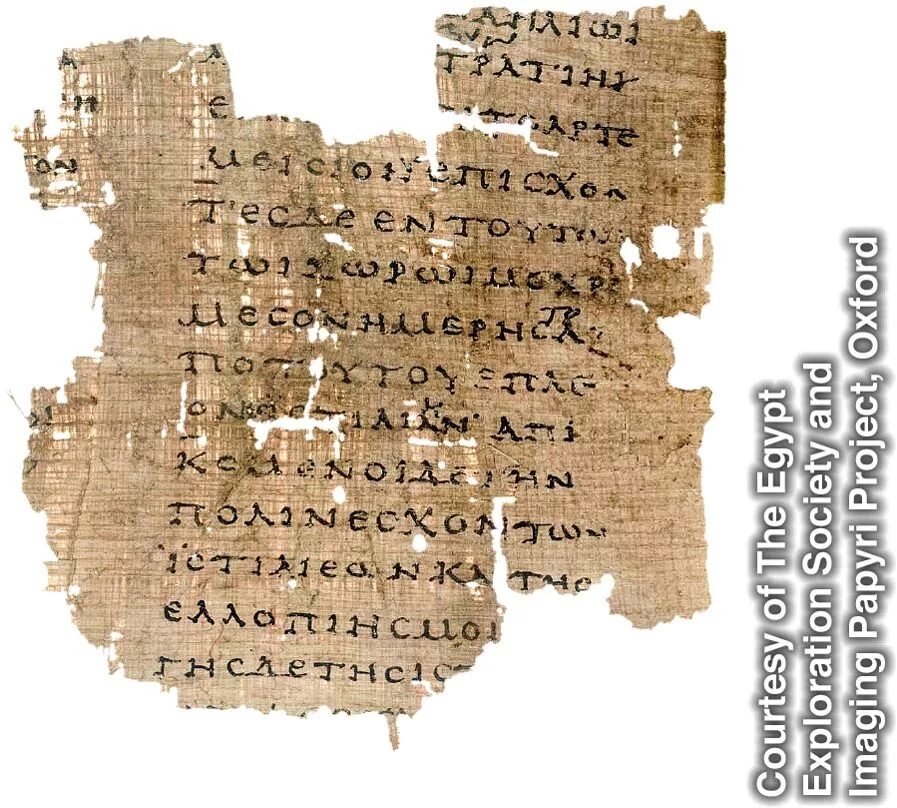 ΗΛΙΩΙ
ΤΡΑΤΙΗΙ
ΑΡΤΕ
ΜΕΙΣΙΟΝ ΕΠΙΣΧΟΝ
ΤΕΣ ΔΕ ΕΝ ΤΟΥΤΩΙ
ΤΩΙ ΧΩΡΩΙ ΜΕΧΡΙ
ΜΕΣΟΝ ΗΜΕΡΗΣ Α
ΠΟ ΤΟΥΤΟΥ ΕΠΛΕ
ΟΝ ΕΣ ΙΣΤΙΑΙΑΝ ΑΠΙ
ΚΟΜΕΝΟΙ ΔΕ ΤΗΝ
ΠΟΛΙΝ ΕΣΧΟΝ ΤΩΝ
ΙΣΤΙΑΙΕΩΝ ΚΑΙ ΤΗΣ
ΕΛΛΟΠΙΗΣ ΜΟΙ
ΓΗΣ ΔΕ ΤΗΣ ΙΣΤ
Courtesy of The Egypt
Exploration Society and
Imaging Papyri Project, Oxford